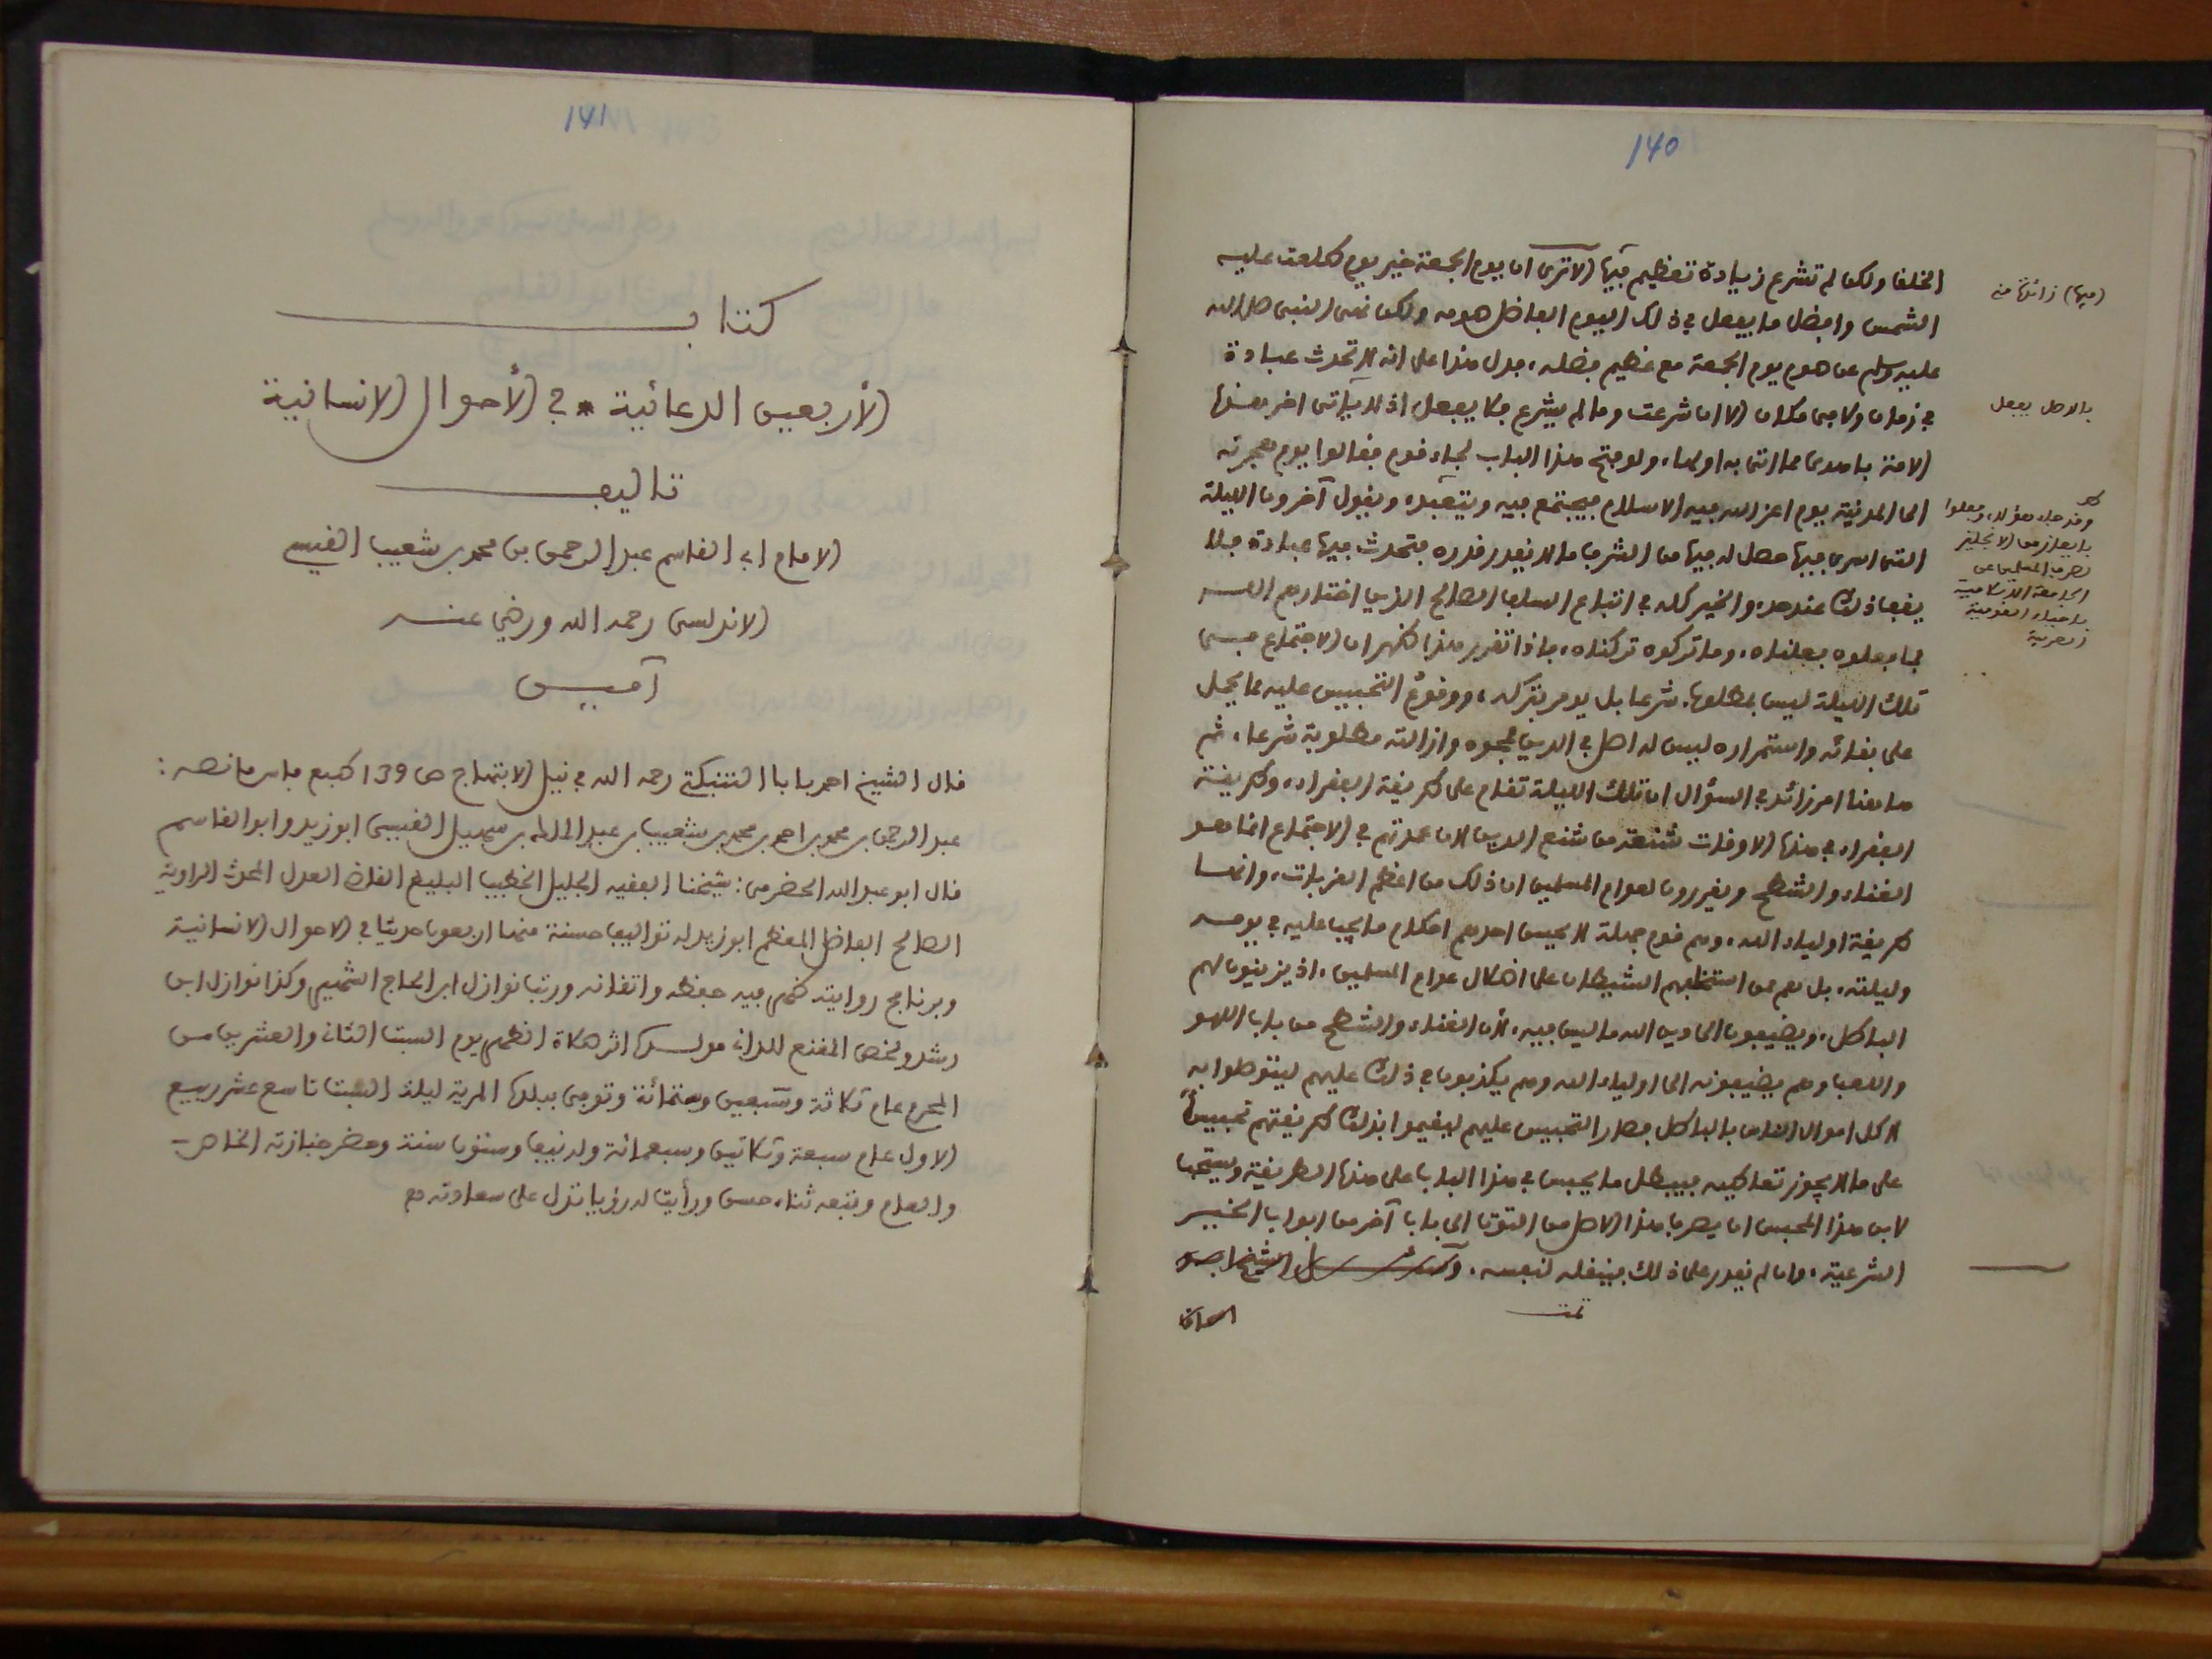 140
الخلفا ولكن لم تشرع زيادة تعظيم فيها ألا ترى ان يوم الجمعة خير يوم طلعت عليه
الشمس وافضل ما يفعل في ذلك اليوم الفاضل صومه ولكن نهى النبي صلى الله
عليه وسلم عن صوم يوم الجمعة مع عظيم فضله، فدل هذا على انه لا تحدث عبادة
في زمان ولا في مكان الا ان شرعت وما لم يشرع فلا يفعل، اذ لا يأتي اخر هذه
الامة باهدى مما اتى به اولها، ولو فتح هذا الباب لجاء قوم فقالوا يوم هجرته
الى المدينة يوم اعز الله فيه الاسلام فيجتمع فيه ويتعبد، ويقول آخرون الليلة
التي اسري فيها حصل له فيها من الشرف ما لا يقدر قدره فتحدث فيها عبادة فلا
يقف ذلك عند حد، والخير كله في اتباع السلف الصالح الذين اختارهم الله
فما فعلوه فعلناه، وما تركوه تركناه، فاذا تقرر هذا ظهر ان الاجتماع في
تلك الليلة ليس بمطلوب شرعا بل يومر بتركه، ووقوع التحبيس عليه مما يحمل
على بقائه واستمراره ليس له اصل في الدين فمحوه وازالته مطلوبة شرعا، ثم
هاهنا امر زائد في السؤال ان تلك الليلة تقام على طريقة الفقراء، وطريقة
الفقراء في هذه الاوقات شنعة من شنع الدين لان عمدتهم في الاجتماع انما هو
الغناء والشطح ويقررون لعوام المسلمين ان ذلك من اعظم القربات، وانها
طريقة اولياء الله، وهم قوم جهلة لا يحسن احدهم احكام ما يجب عليه في يومه
وليلته، بل هم ممن استخلفهم الشيطان على اضلال عوام المسلمين، اذ يزينون لهم
الباطل، ويضيفون الى دين الله ما ليس فيه، لان الغناء والشطح من باب اللهو
واللعب وهم يضيفونه الى اولياء الله وهم يكذبون في ذلك عليهم ليتوصلوا به
لاكل اموال الناس بالباطل فصار التحبيس عليهم ليقيموا بذلك طريقتهم تحبيساً
على ما لا يجوز تعاطيه فيبطل ما يحبس في هذا الباب على هذه الطريقة ويستحب
لابن هذا المحبس ان يصرف هذا الاصل من التوت الى باب آخر من ابواب الخير
الشرعية، وان لم يقدر على ذلك فينقله لنفسه.
تمت
(فيها) زائدة منه
بالاصل يفعل
وقد جاء هؤلاء وفعلوا
بايعاز من الانجليز
لصرف المسلمين عن
الجامعة الاسلامية
باحياء القومية
العربية
141
كتاب
الأربعين الدعائية * في الأحوال الانسانية
تاليف
الامام ابي القاسم عبد الرحمن بن محمد بن شعيب القيسي
الاندلسي رحمه الله ورضي عنه
آميـن
قال الشيخ احمد بابا التنبكتي رحمه الله في نيل الابتهاج ص 139 طبع فاس ما نصه:
عبد الرحمن بن محمد بن احمد بن محمد بن شعيب بن عبد الملك بن سهيل القيسي ابو زيد وابو القاسم
قال ابو عبد الله الحضرمي: شيخنا الفقيه الجليل الخطيب البليغ القاضي العدل المحدث الراوية
الصالح الفاضل المعظم ابو زيد له تواليف حسنة منها اربعون حديثا في الاحوال الانسانية
وبرنامج روايته ظهر فيه حفظه واتقانه ورتب نوازل ابن الحاج الشهير وكذا نوازل ابن
رشد ولخص المقنع للداني مولده اثر صلاة الظهر يوم السبت الثاني والعشرين من
المحرم عام ثلاثة وسبعين وستمائة وتوفي ببلده المرية ليلة السبت تاسع عشر ربيع
الاول عام سبعة وثلاثين وسبعمائة وله نيف وستون سنة وحضر جنازته الخاص
والعام وتبعه ثناء حسن ورأيت له رؤيا تدل على سعادته هـ